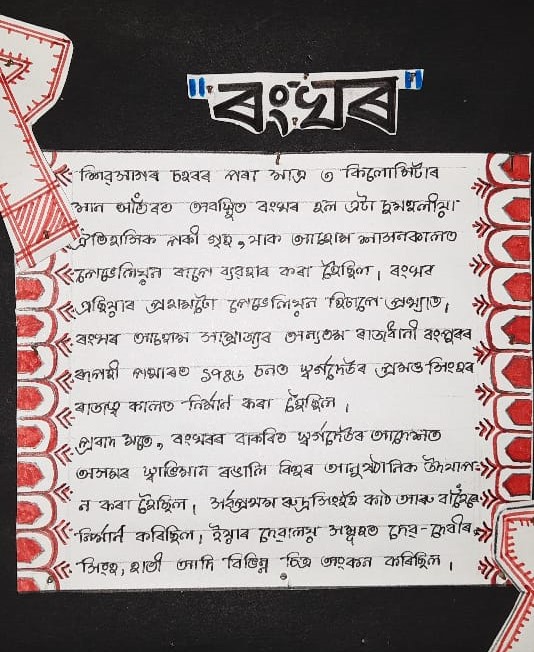 "ৰংঘৰ"
শিৱসাগৰ চহৰৰ পৰা মাত্ৰ ৩ কিলোমিটাৰ
মান আঁতৰত অৱস্থিত ৰংঘৰ হল এটা দুমহলীয়া
ঐতিহাসিক পকী গৃহ, যাক আহোম শাসনকালত
পেভেলিয়ন ৰূপে ব্যৱহাৰ কৰা হৈছিল। ৰংঘৰ
এছিয়াৰ প্ৰথমটো পেভেলিয়ন হিচাপে প্ৰখ্যাত।
ৰংঘৰ আহোম সাম্ৰাজ্যৰ অন্যতম ৰাজধানী ৰংপুৰৰ
ৰূপহী পথাৰত ১৭৪৬ চনত স্বৰ্গদেউৰ প্ৰমত্ত সিংহৰ
ৰাজত্ব কালত নিৰ্মাণ কৰা হৈছিল।
প্ৰবাদ মতে, ৰংঘৰৰ বাকৰিত স্বৰ্গদেউৰ আদেশত
অসমৰ স্বাভিমান ৰঙালি বিহুৰ আনুষ্ঠানিক উদযাপ-
ন কৰা হৈছিল। সৰ্বপ্ৰথম ৰুদ্ৰসিংহই কাঠ আৰু বাঁহেৰে
নিৰ্মাণ কৰিছিল। ইয়াৰ দেৱালয় সমূহত দেৱ-দেৱীৰ
সিংহ, হাতী আদি বিভিন্ন চিত্ৰ অংকন কৰিছিল।